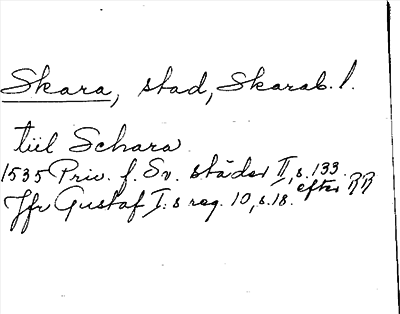 Skara, stad, Skarab. l.
tiil Schara
1535 Priv. f. Sv. städer II, s. 133. efter RR
Jfr Gustaf I:s reg. 10, s. 18.